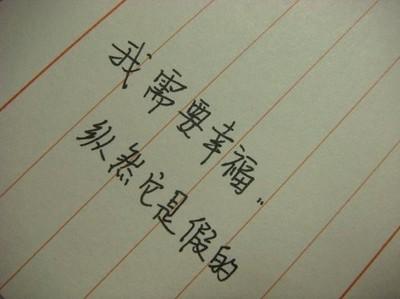 我需要幸福”
纵然它是假的